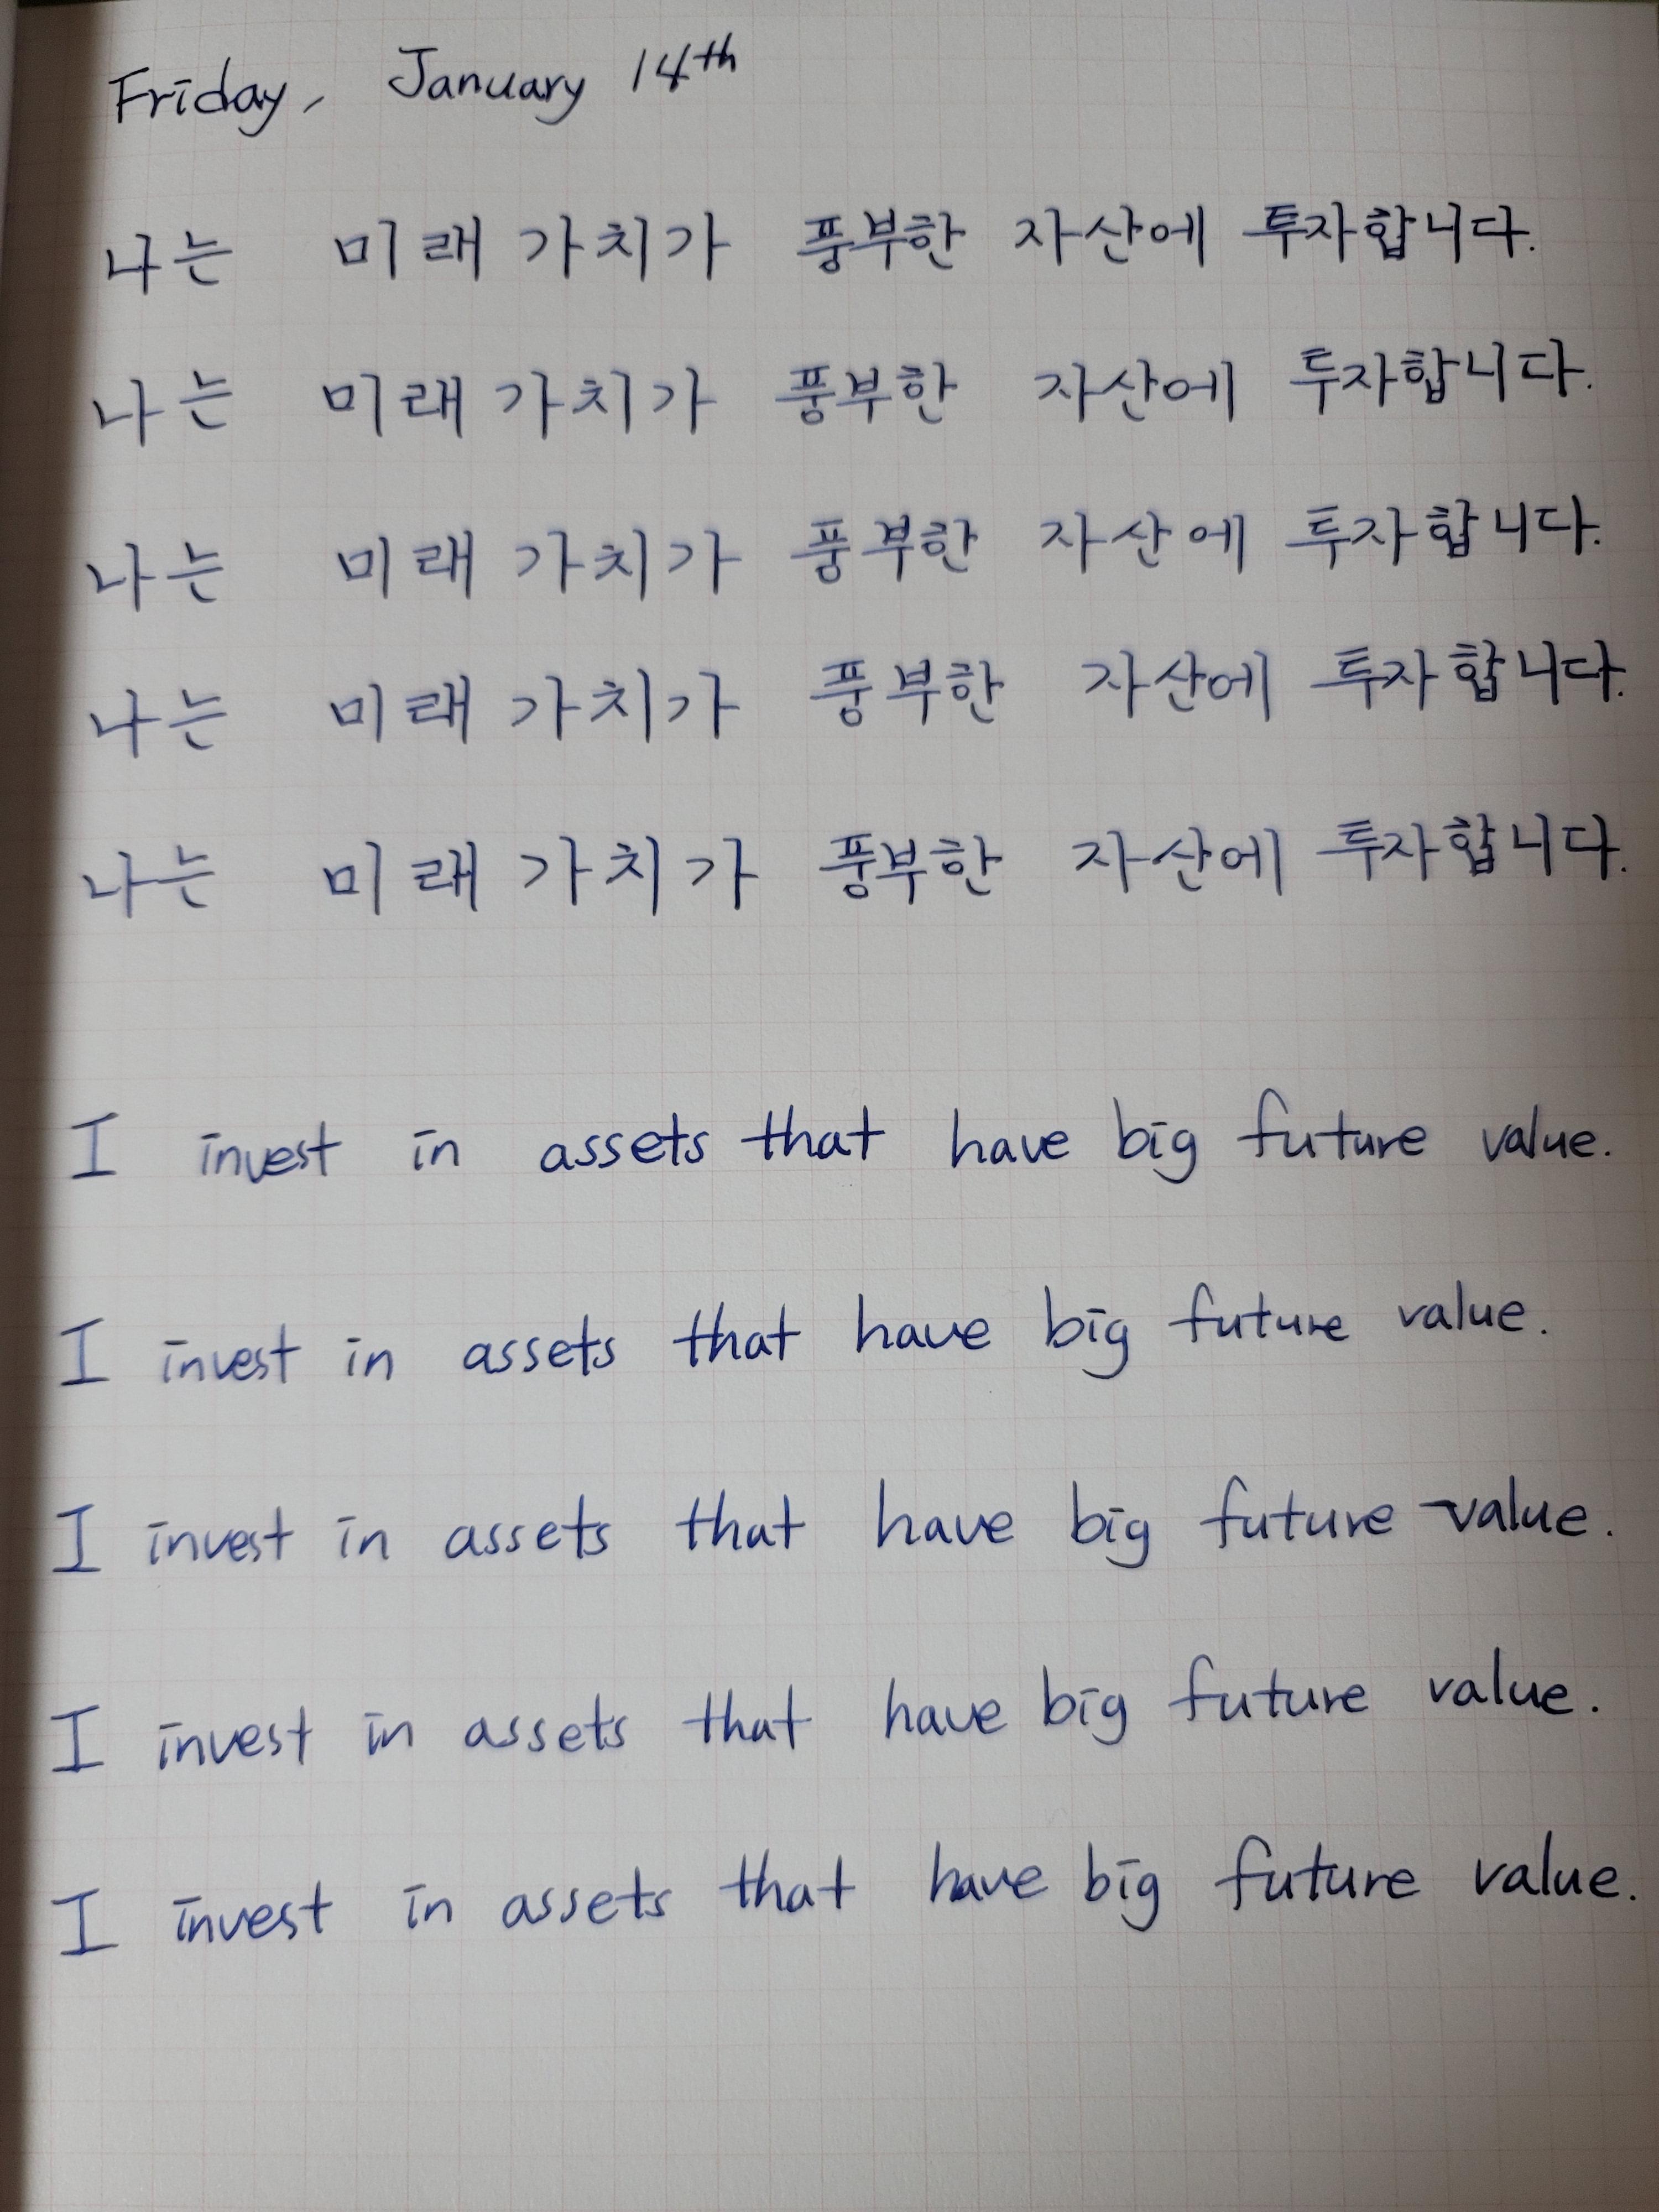 Friday, January 14th
나는 미래 가치가 풍부한 자산에 투자합니다.
나는 미래 가치가 풍부한 자산에 투자합니다.
나는 미래 가치가 풍부한 자산에 투자합니다.
나는 미래 가치가 풍부한 자산에 투자합니다.
나는 미래 가치가 풍부한 자산에 투자합니다.
I invest in assets that have big future value.
I invest in assets that have big future value.
I invest in assets that have big future value.
I invest in assets that have big future value.
I invest in assets that have big future value.